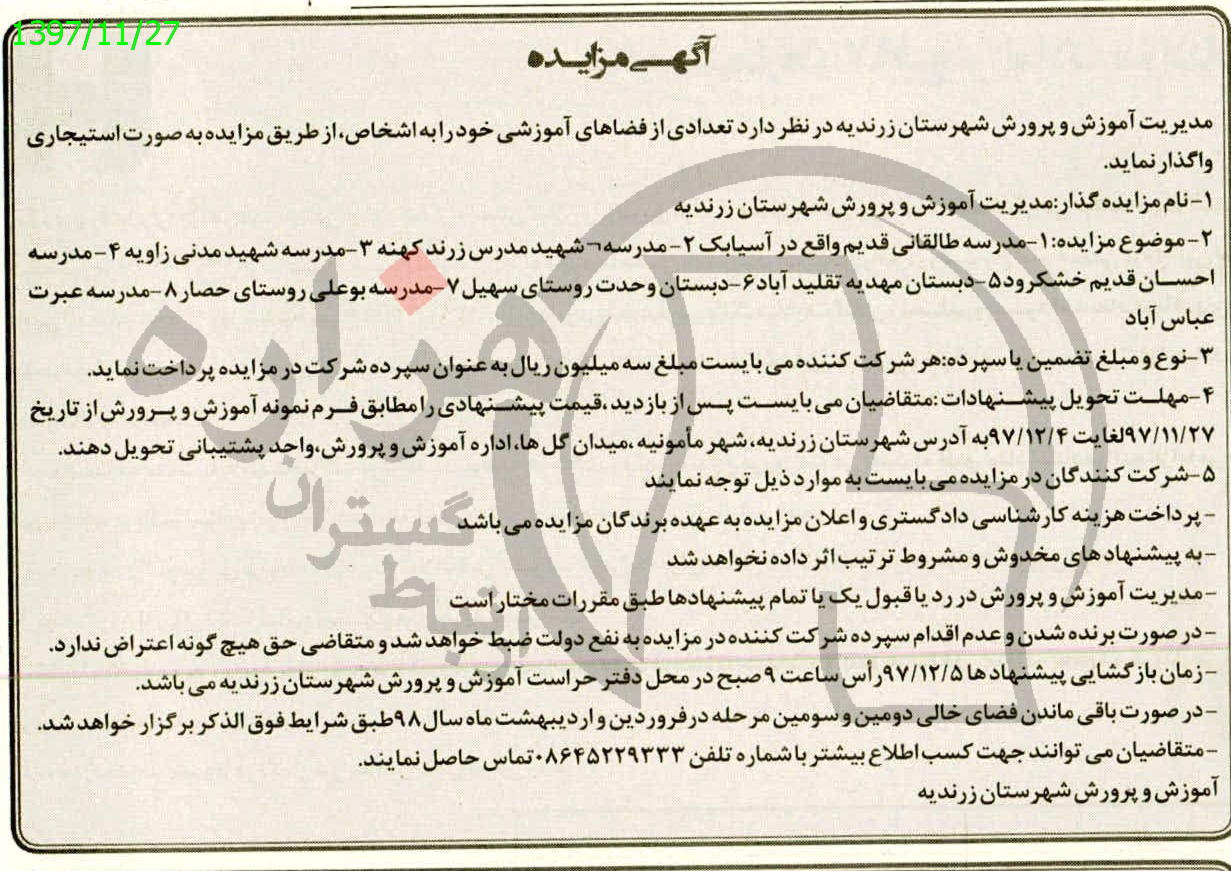 1397/11/27
آگهی مزایده
مدیریت آموزش و پرورش شهرستان زرندیه در نظر دارد تعدادی از فضاهای آموزشی خود را به اشخاص، از طریق مزایده به صورت استیجاری
واگذار نماید.
۱-نام مزایده گذار:مدیریت آموزش و پرورش شهرستان زرندیه
۲-موضوع مزایده:۱-مدرسه طالقانی قدیم واقع در آسیابک ۲- مدرسه¬شهید مدرس زرند کهنه ۳-مدرسه شهید مدنی زاویه ۴-مدرسه
احسان قدیم خشکرود۵-دبستان مهدیه تقلید آباد۶-دبستان وحدت روستای سهیل۷-مدرسه بوعلی روستای حصار۸-مدرسه عبرت
عباس آباد
۳-نوع و مبلغ تضمین یا سپرده:هر شرکت کننده می بایست مبلغ سه میلیون ریال به عنوان سپرده شرکت در مزایده پرداخت نماید.
۴-مهلت تحویل پیشنهادات :متقاضیان می بایست پس از بازدید ،قیمت پیشنهادی را مطابق فرم نمونه آموزش و پرورش از تاریخ
۹۷/۱۱/۲۷لغایت ۹۷/۱۲/۴به آدرس شهرستان زرندیه، شهر مأمونیه ،میدان گل ها، اداره آموزش و پرورش،واحد پشتیبانی تحویل دهند.
۵-شرکت کنندگان در مزایده می بایست به موارد ذیل توجه نمایند
- پرداخت هزینه کارشناسی دادگستری و اعلان مزایده به عهده برندگان مزایده می باشد
-به پیشنهاد های مخدوش و مشروط ترتیب اثر داده نخواهد شد
-مدیریت آموزش و پرورش در رد یا قبول یک یا تمام پیشنهادها طبق مقررات مختار است
-در صورت برنده شدن و عدم اقدام سپرده شرکت کننده در مزایده به نفع دولت ضبط خواهد شد و متقاضی حق هیچ گونه اعتراض ندارد.
-زمان بازگشایی پیشنهاد ها ۹۷/۱۲/۵رأس ساعت ۹ صبح در محل دفتر حراست آموزش و پرورش شهرستان زرندیه می باشد.
-در صورت باقی ماندن فضای خالی دومین و سومین مرحله در فروردین و اردیبهشت ماه سال ۹۸طبق شرایط فوق الذکر برگزار خواهد شد.
-متقاضیان می توانند جهت کسب اطلاع بیشتر با شماره تلفن ۰۸۶۴۵۲۲۹۳۳۳تماس حاصل نمایند.
آموزش و پرورش شهرستان زرندیه
هزاره
گستران
ارتباط